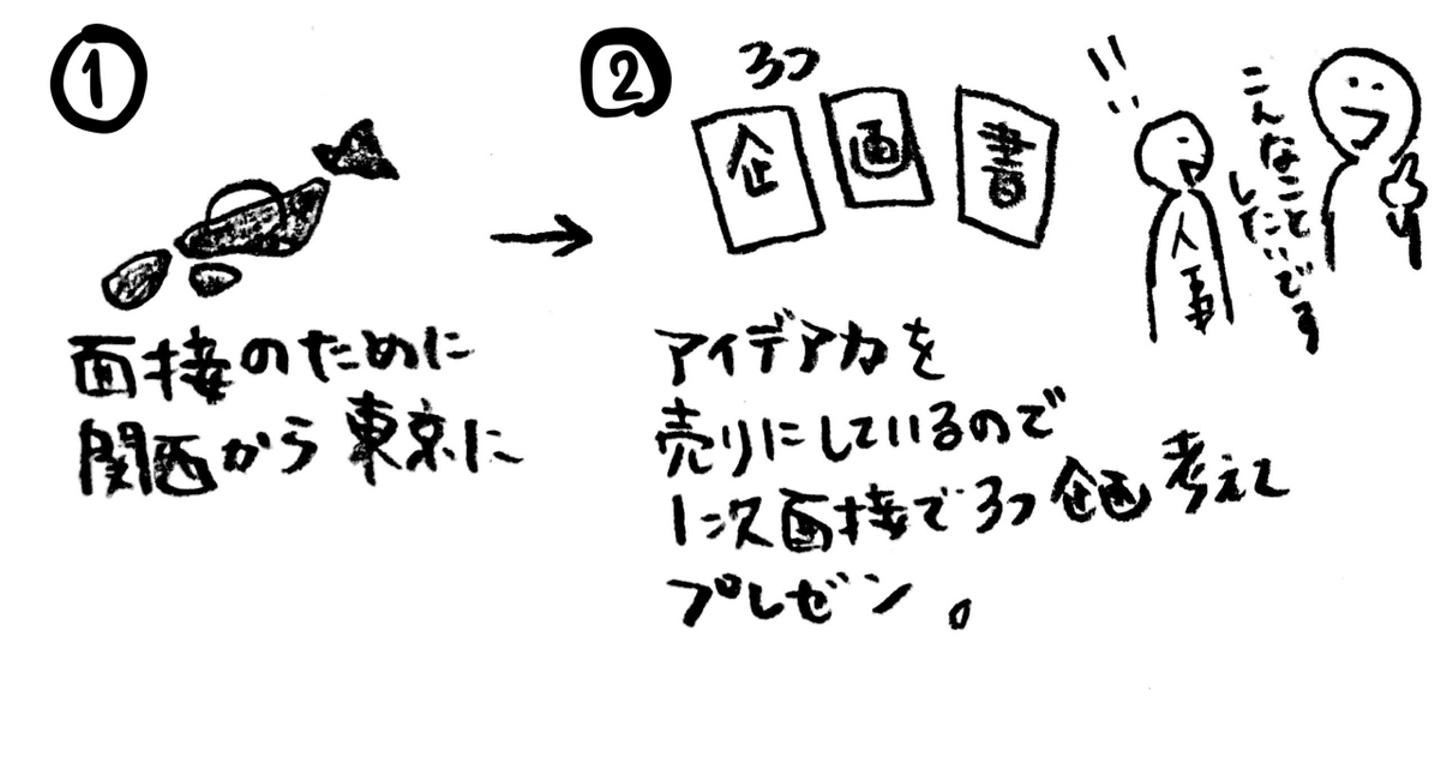 1
面接のために
関西から東京に
2
3つ
企画書
!!
人事
こんなこと
したいです
アイデア力を
売りにしているので
1次面接で3つ企画考えて
プレゼン。